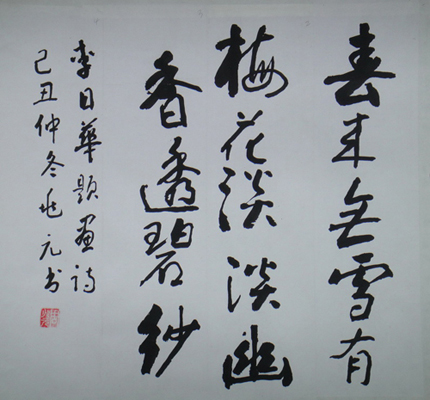 春来無雪有
梅花淡淡幽
香透碧紗
李日華題畫詩
己丑仲冬兆元书